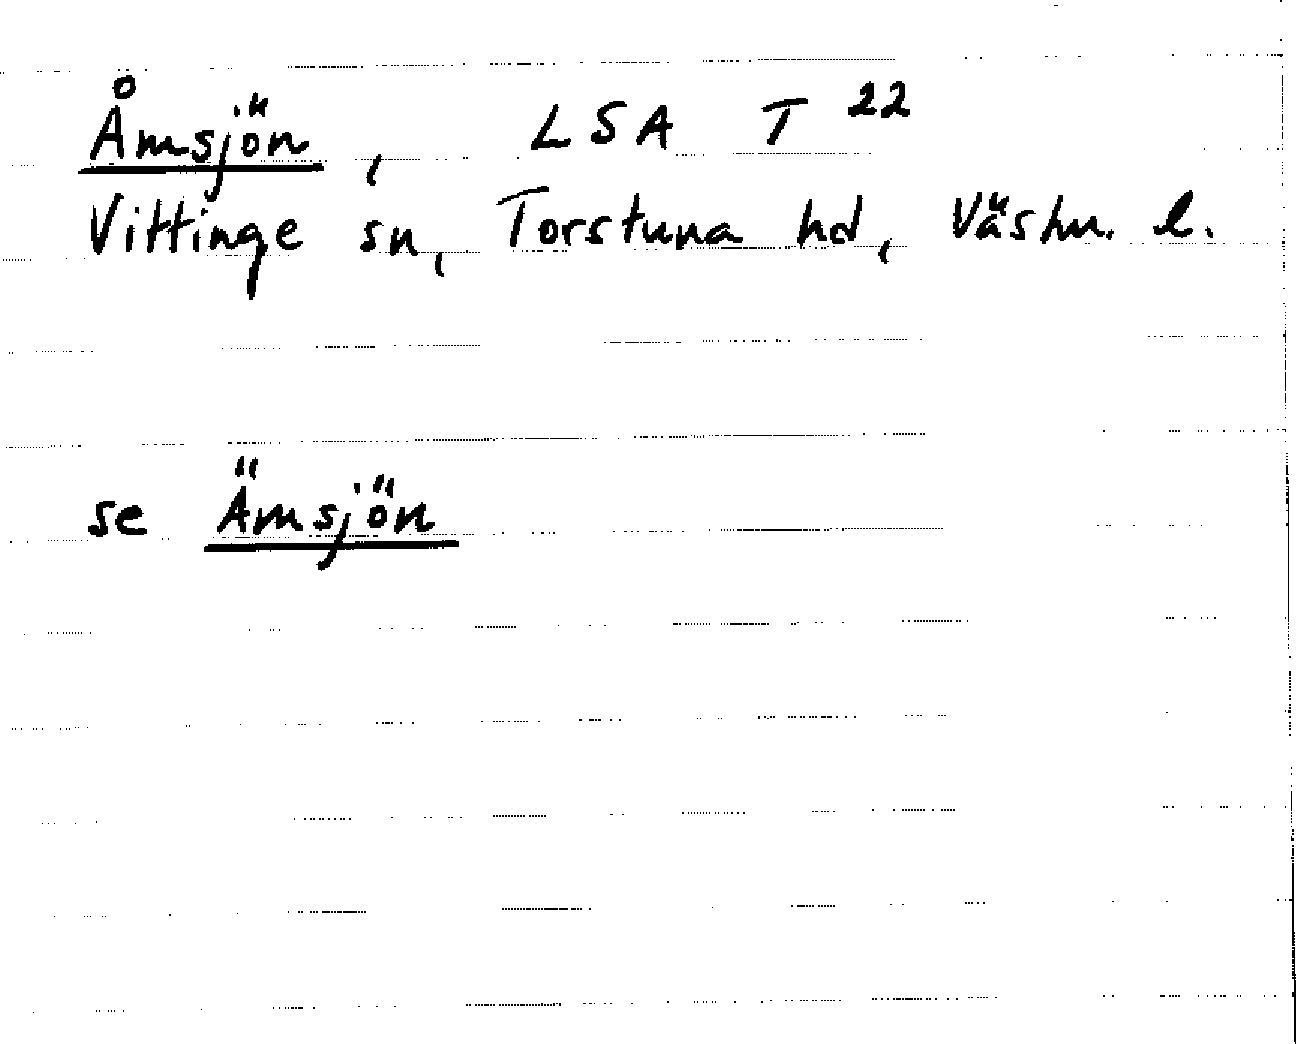 Åmsjön, LSA T 22
Vittinge sn, Torstuna hd, Västm. l.
se Ämsjön